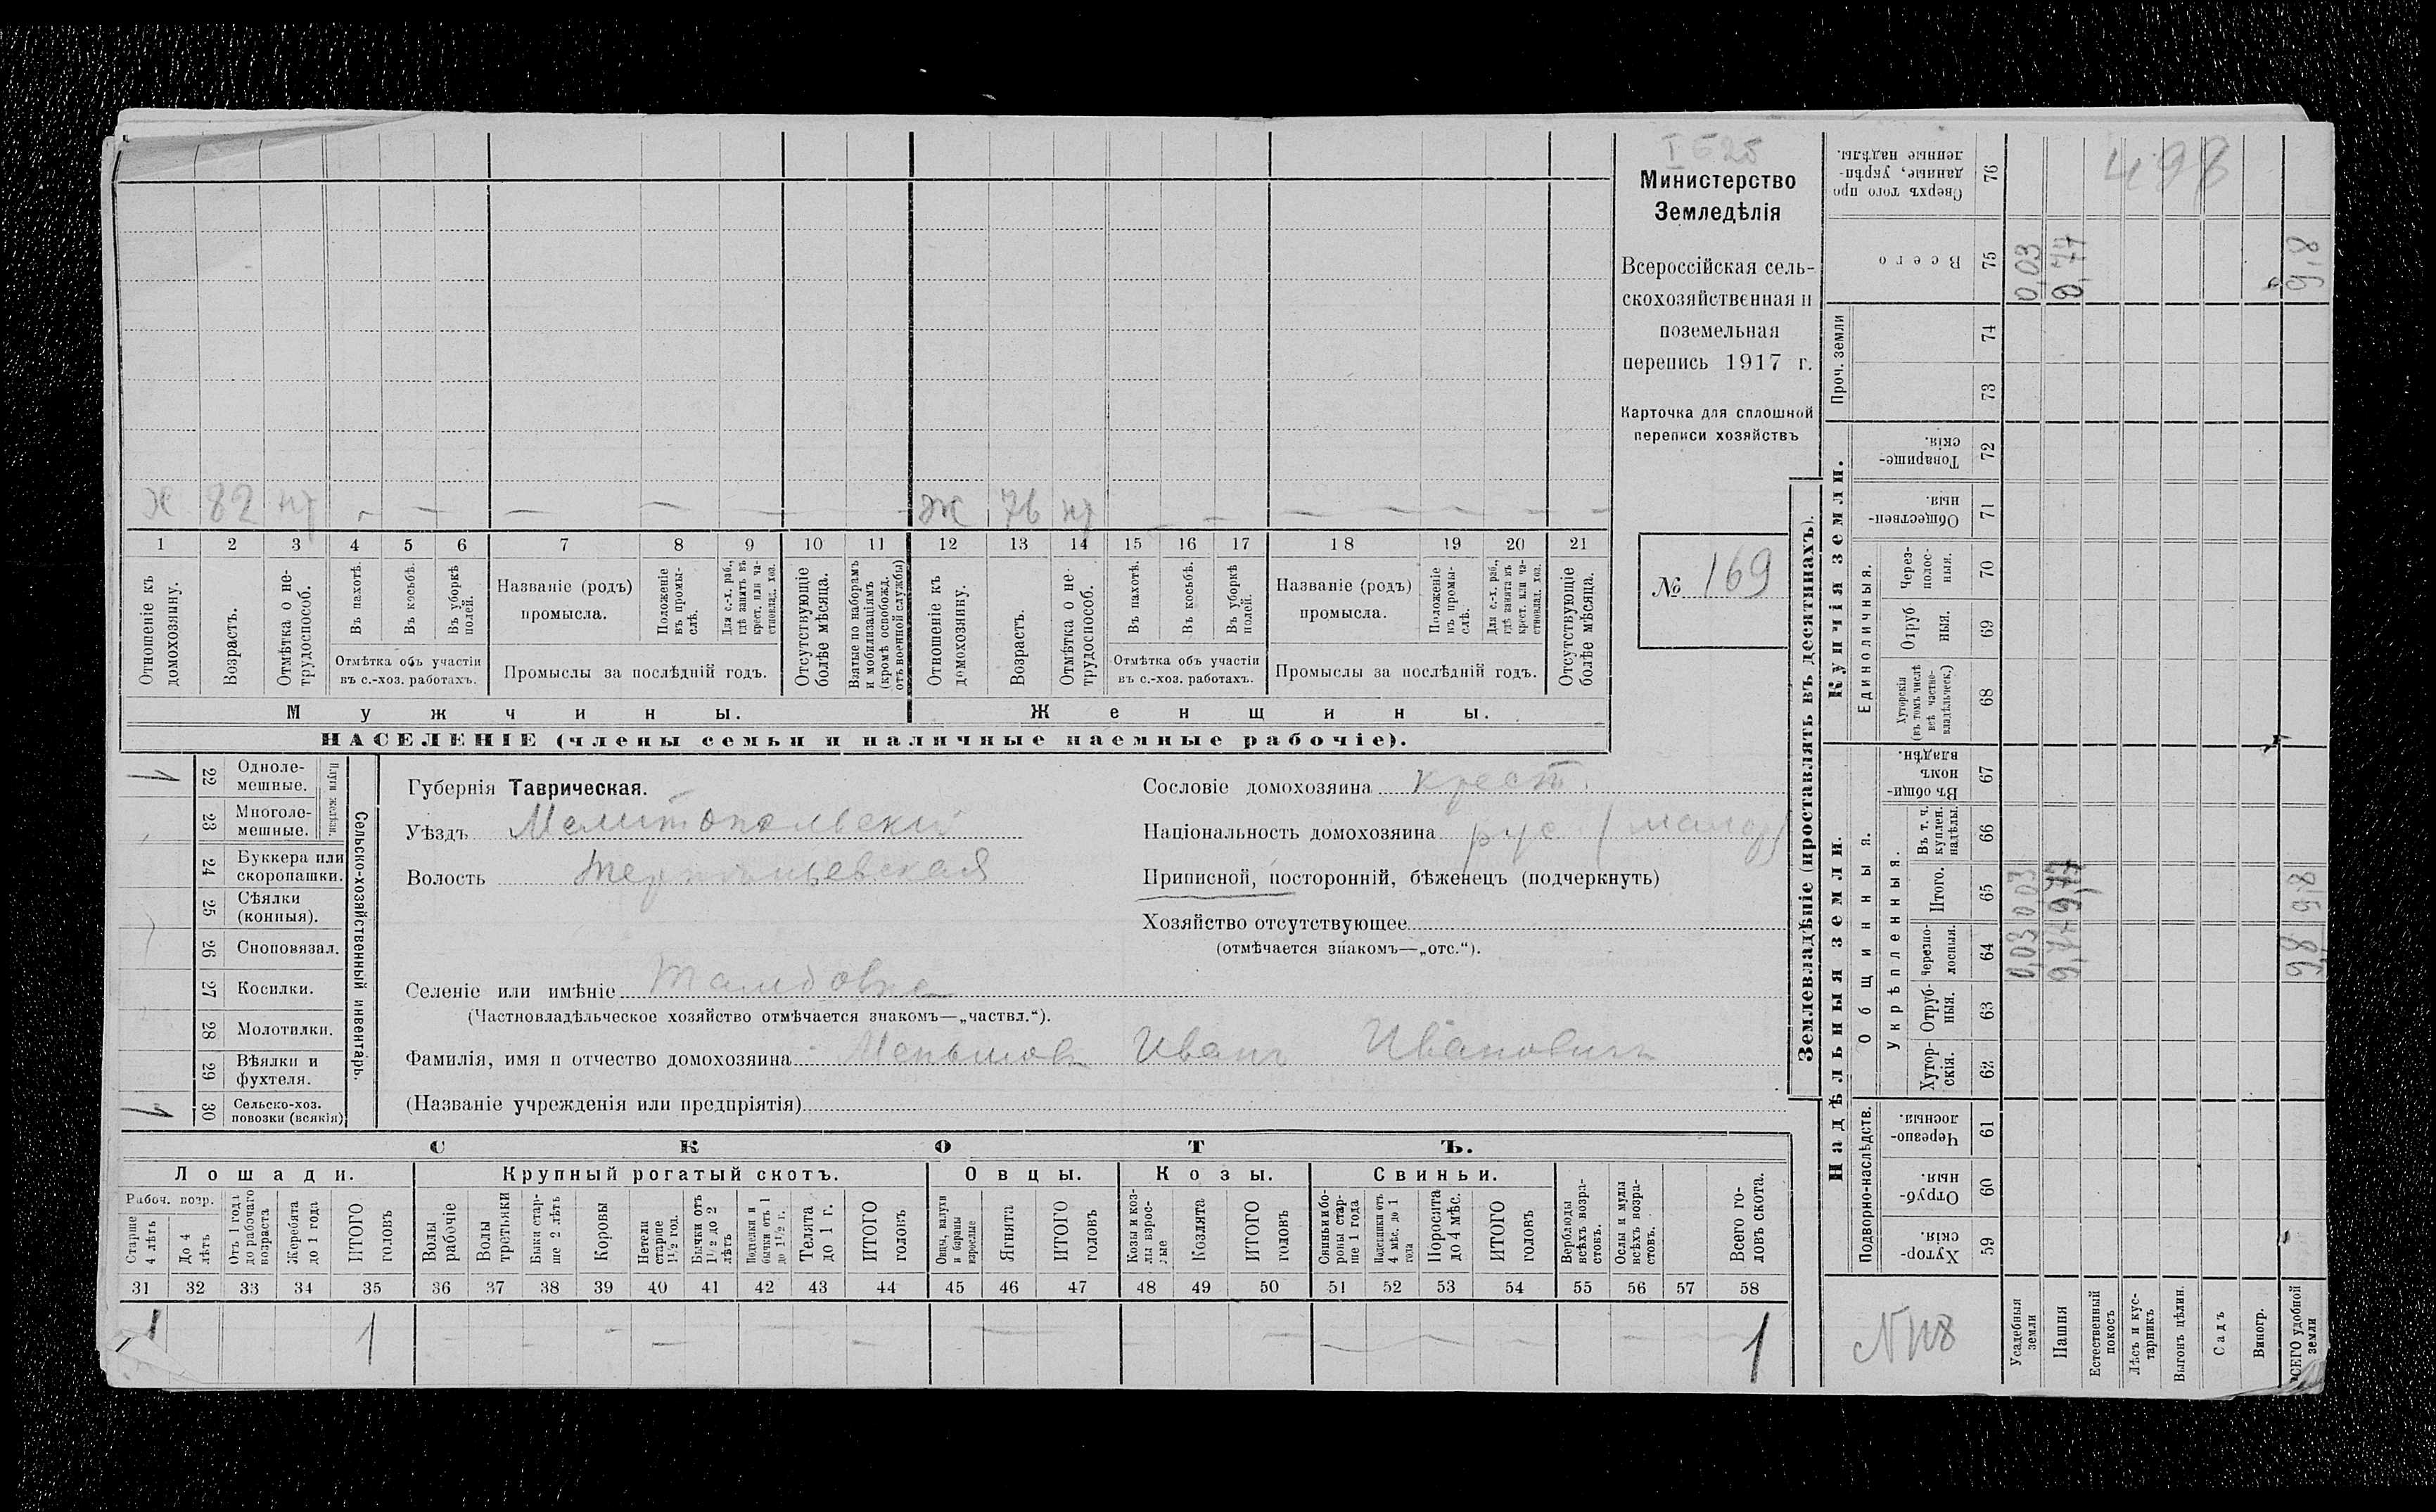 I 625
Министерство
Земледѣлія
Всероссійская сель-
скохозяйственная и
поземельная
перепись 1917 г.
Карточка для сплошной
переписи хозяйствъ
№ 169
х 82 нт
Ж 76 нт
1 2 3 4 5 6 7 8 9 10 11 12 13 14 15 16 17 18 19 20 21
Отношеніе къ домохозяину.
Возрастъ.
Отмѣтка о не-трудоспособ.
Въ пахотѣ.
Въ косьбѣ.
Въ уборкѣ полей.
Отмѣтка объ участіи
въ с.-хоз. работахъ.
Названіе (родъ)
промысла.
Положеніе въ промы-слѣ.
Для с.-х. раб., гдѣ занятъ въ крест. или ча-стновлад. хоз.
Промыслы за послѣдній годъ.
Отсутствующіе болѣе мѣсяца.
Взятые по наборамъ и мобилизаціямъ (кромѣ освобожд. отъ военной службы)
Отношеніе къ домохозяину.
Возрастъ.
Отмѣтка о не-трудоспособ.
Въ пахотѣ.
Въ косьбѣ.
Въ уборкѣ полей.
Отмѣтка объ участіи
въ с.-хоз. работахъ.
Названіе (родъ)
промысла.
Положеніе въ промы-слѣ.
Для с.-х. раб., гдѣ занята въ крест. или ча-стновлад. хоз.
Промыслы за послѣдній годъ.
Отсутствующіе болѣе мѣсяца.
Мужчины.
Женщины.
НАСЕЛЕНІЕ (члены семьи и наличные наемные рабочіе).
Сельско-хозяйственный инвентарь.
Плуги желѣзн.
1 22 Одноле-мешные.
23 Многоле-мешные.
24 Буккера или скоропашки.
25 Сѣялки (конныя).
26 Сноповязал.
27 Косилки.
28 Молотилки.
29 Вѣялки и фухтеля.
1 30 Сельско-хоз. повозки (всякія)
Губернія Таврическая.
Уѣздъ Мелитопольскій
Волость
Сословіе домохозяина крест.
Національность домохозяина рус. (малор)
Приписной, посторонній, бѣженецъ (подчеркнуть)
Хозяйство отсутствующее
(отмѣчается знакомъ—„отс.“).
Селеніе или имѣніе
(Частновладѣльческое хозяйство отмѣчается знакомъ—„частвл.“).
Фамилія, имя и отчество домохозяина Меньшовъ Иванъ Ивановичъ
(Названіе учрежденія или предпріятія)
СКОТЪ.
Лошади. Крупный рогатый скотъ. Овцы. Козы. Свиньи.
Рабоч. возр.
Старше 4 лѣтъ
До 4 лѣтъ
Отъ 1 года до рабочаго возраста
Жеребята до 1 года
ИТОГО головъ
Волы рабочіе
Волы третьяки
Быки стар-ше 2 лѣтъ
Коровы
Нетели старше 1½ год.
Бычки отъ 1½ до 2 лѣтъ
Подтелки и бычки отъ 1 до 1½ г.
Телята до 1 г.
ИТОГО головъ
Овцы, валухи и бараны взрослые
Ягнята
ИТОГО головъ
Козы и коз-лы взрос-лые
Козлята
ИТОГО головъ
Свиньи и бо-ровы стар-ше 1 года
Подсвинки отъ 4 мѣс. до 1 года
Поросята до 4 мѣс.
ИТОГО головъ
Верблюды всѣхъ возра-стовъ.
Ослы и мулы всѣхъ возра-стовъ.
Всего го-ловъ скота.
31 32 33 34 35 36 37 38 39 40 41 42 43 44 45 46 47 48 49 50 51 52 53 54 55 56 57 58
1 1 1
Землевладѣніе (проставлять въ десятинахъ).
Надѣльныя земли.
Купчія земли.
Проч. земли
Подворно-наслѣдств.
Общинныя.
Укрѣпленныя.
Единоличныя.
Хутор-скія. 59
Отруб-ныя. 60
Черезпо-лосныя. 61
Хутор-скія. 62
Отруб-ныя. 63
Черезпо-лосныя. 64
Итого. 65
Въ т. ч. куплен. надѣлы. 66
Въ общи-номъ владѣн. 67
Хуторскія (въ томъ числѣ всѣ частно-владѣльческ.) 68
Отруб ныя. 69
Через-полос-ныя. 70
Обществен-ныя. 71
Товарище-скія. 72
73
74
Всего 75
Сверхъ того про данные, укрѣп-ленные надѣлы. 76
498
Усадебныя земли 0,03 0,03 0,03
Пашня 9,77 9,77 9,77
Естественный покосъ
Лѣсъ и кус-тарникъ
Выгонъ цѣлин.
Садъ
Виногр.
ВСЕГО удобной земли 9,8 9,8 9,8
N 118